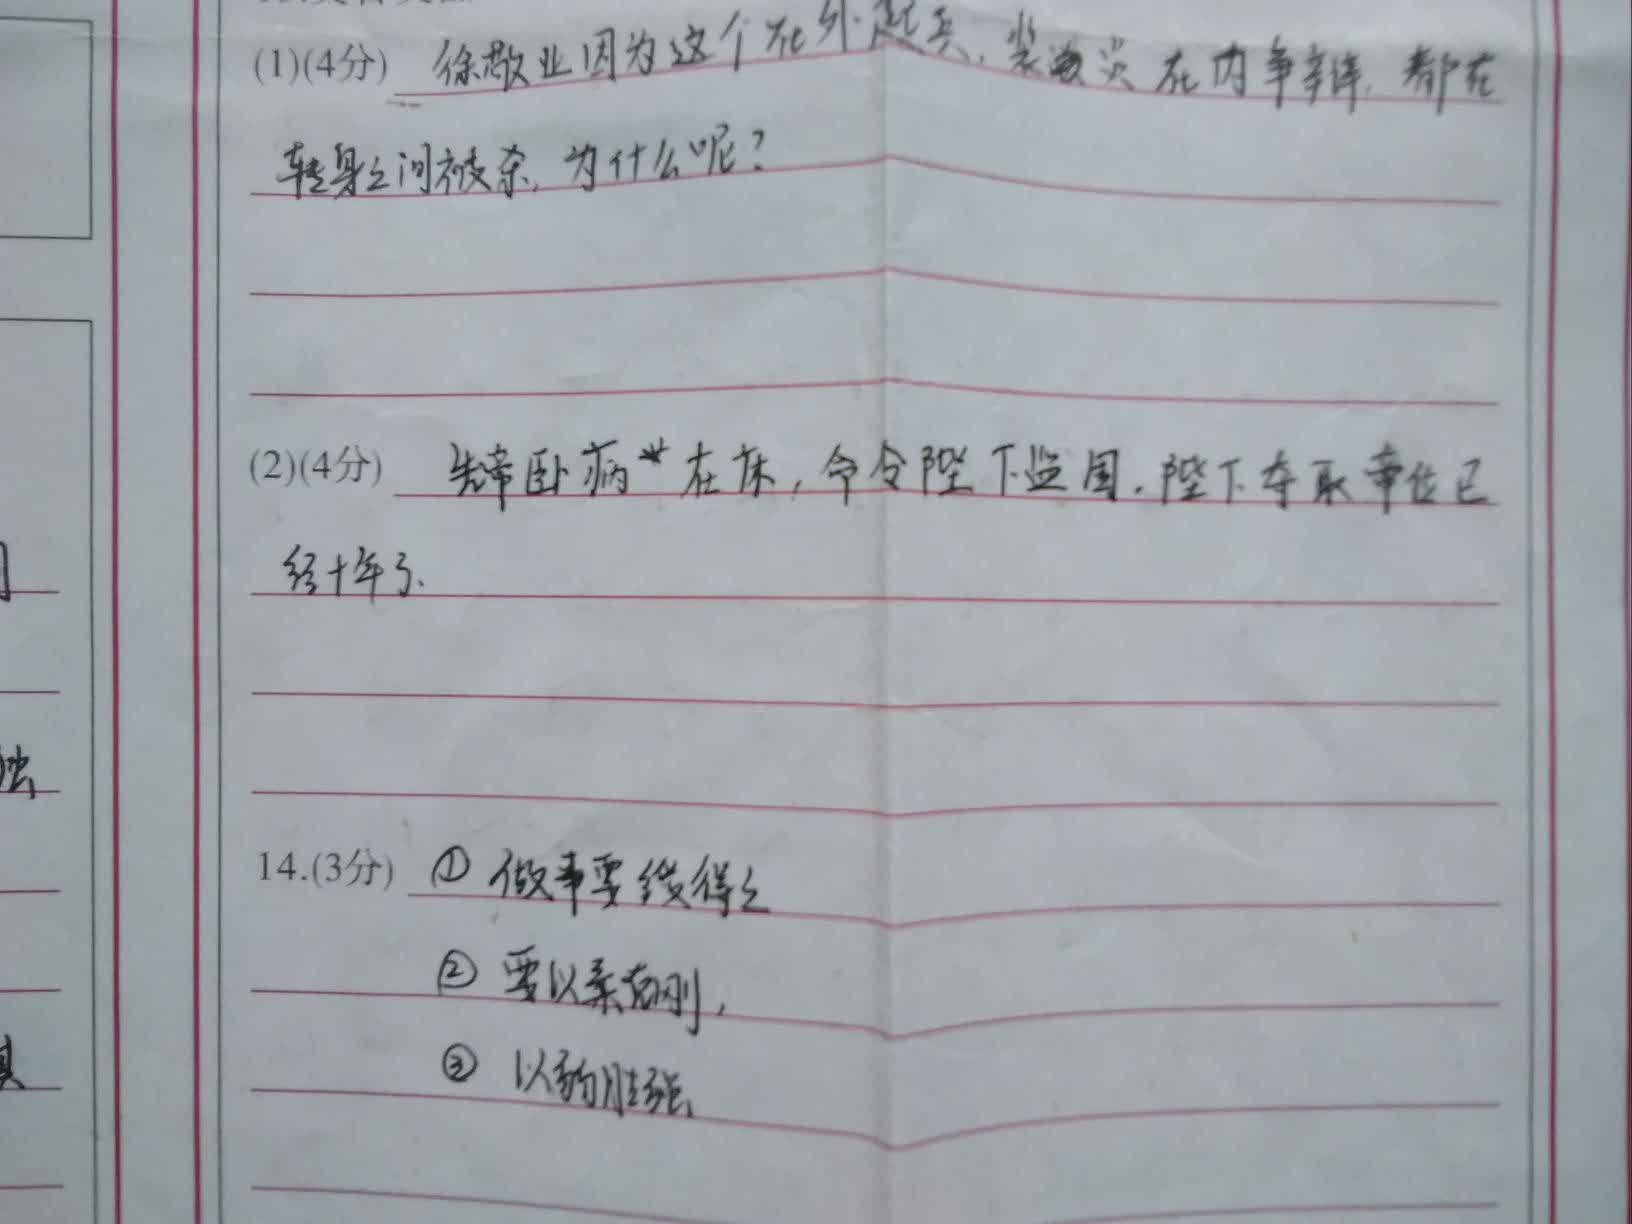 (1)(4分) 徐敬业因为这个在外起兵,裴炎在内争辩,都在
转身之间被杀,为什么呢?
(2)(4分) 先帝卧病在床,命令陛下监国.陛下夺取帝位已
经十年了、
独
具
14.(3分) ① 做事要缓得之
② 要以柔克刚,
③ 以弱胜强、